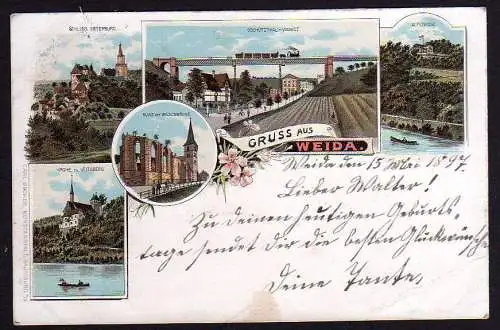 SCHLOSS OSTERBURG
OSCHÜTZTHAL-VIADUCT
RUINE DER WIDENKIRCHE
KIRCHE ZU VEITSBERG
GRUSS AUS
WEIDA.
Weida den 15 Mai 1897
Lieber Walter!
Zu deinem heutigen Geburts-
tage sendet dir die besten Glückwünsche
Deine Tante.